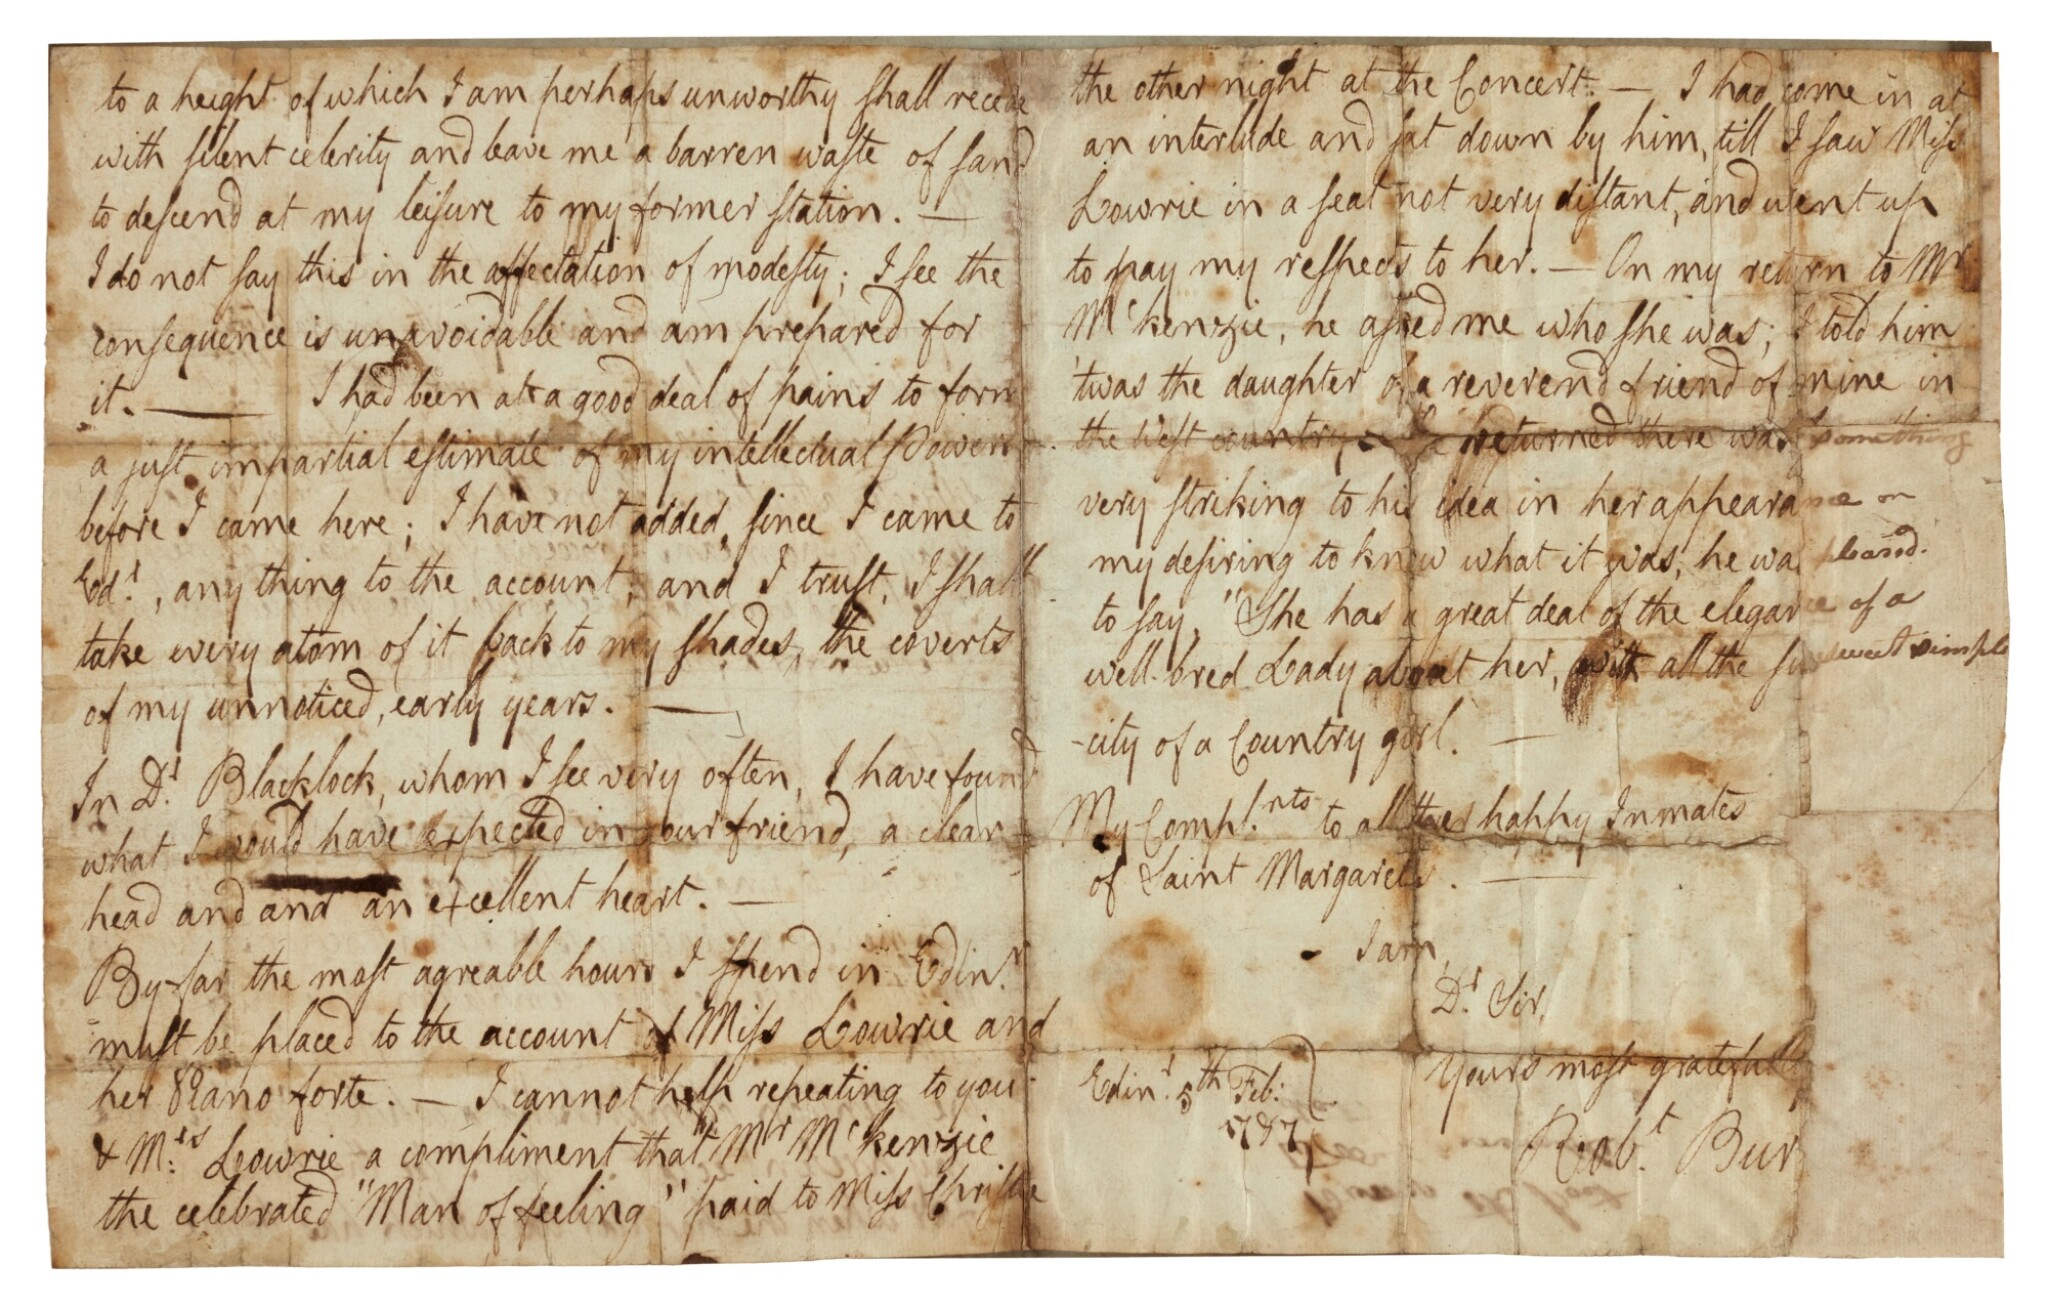 to a height of which I am perhaps unworthy shall recede
with silent celerity and leave me a barren waste of sand
to descend at my leisure to my former station. —
I do not say this in the affectation of modesty; I see the
consequence is unavoidable and am prepared for
it. — I had been at a good deal of pains to form
a just impartial estimate of my intellectual Powers
before I came here; I have not added, since I came to
Edr., any thing to the account; and I trust, I shall
take every atom of it back to my shades, the coverts
of my unnoticed, early years. —
In Dr. Blacklock, whom I see very often, I have found
what I would have expected in our friend, a clear
head and and an excellent heart. —
By far the most agreable hours I spend in Edinr.
must be placed to the account of Miss Lowrie and
her Piano forte. — I cannot help repeating to you
& Mrs. Lowrie a compliment that Mr Mckenzie
the celebrated "Man of feeling" paid to Miss Christie
the other night at the Concert. — I had come in at
an interlude and sat down by him, till I saw Miss
Lowrie in a seat not very distant, and went up
to pay my respects to her. — On my return to Mr
Mckenzie, he asked me who she was; I told him
'twas the daughter of a reverend friend of mine in
the West country. he returned there was something
very striking to his idea in her appearance on
my desiring to know what it was, he was pleased
to say, "She has a great deal of the elegance of a
well-bred Lady about her, with all the sweet simpli
-city of a Country girl. —
My Compl.nts to all the happy Inmates
of Saint Margarets. —
I am,
Dr. Sir,
Yours most gratefull
Edinr. 5th Feb:
1787
Robt. Bur